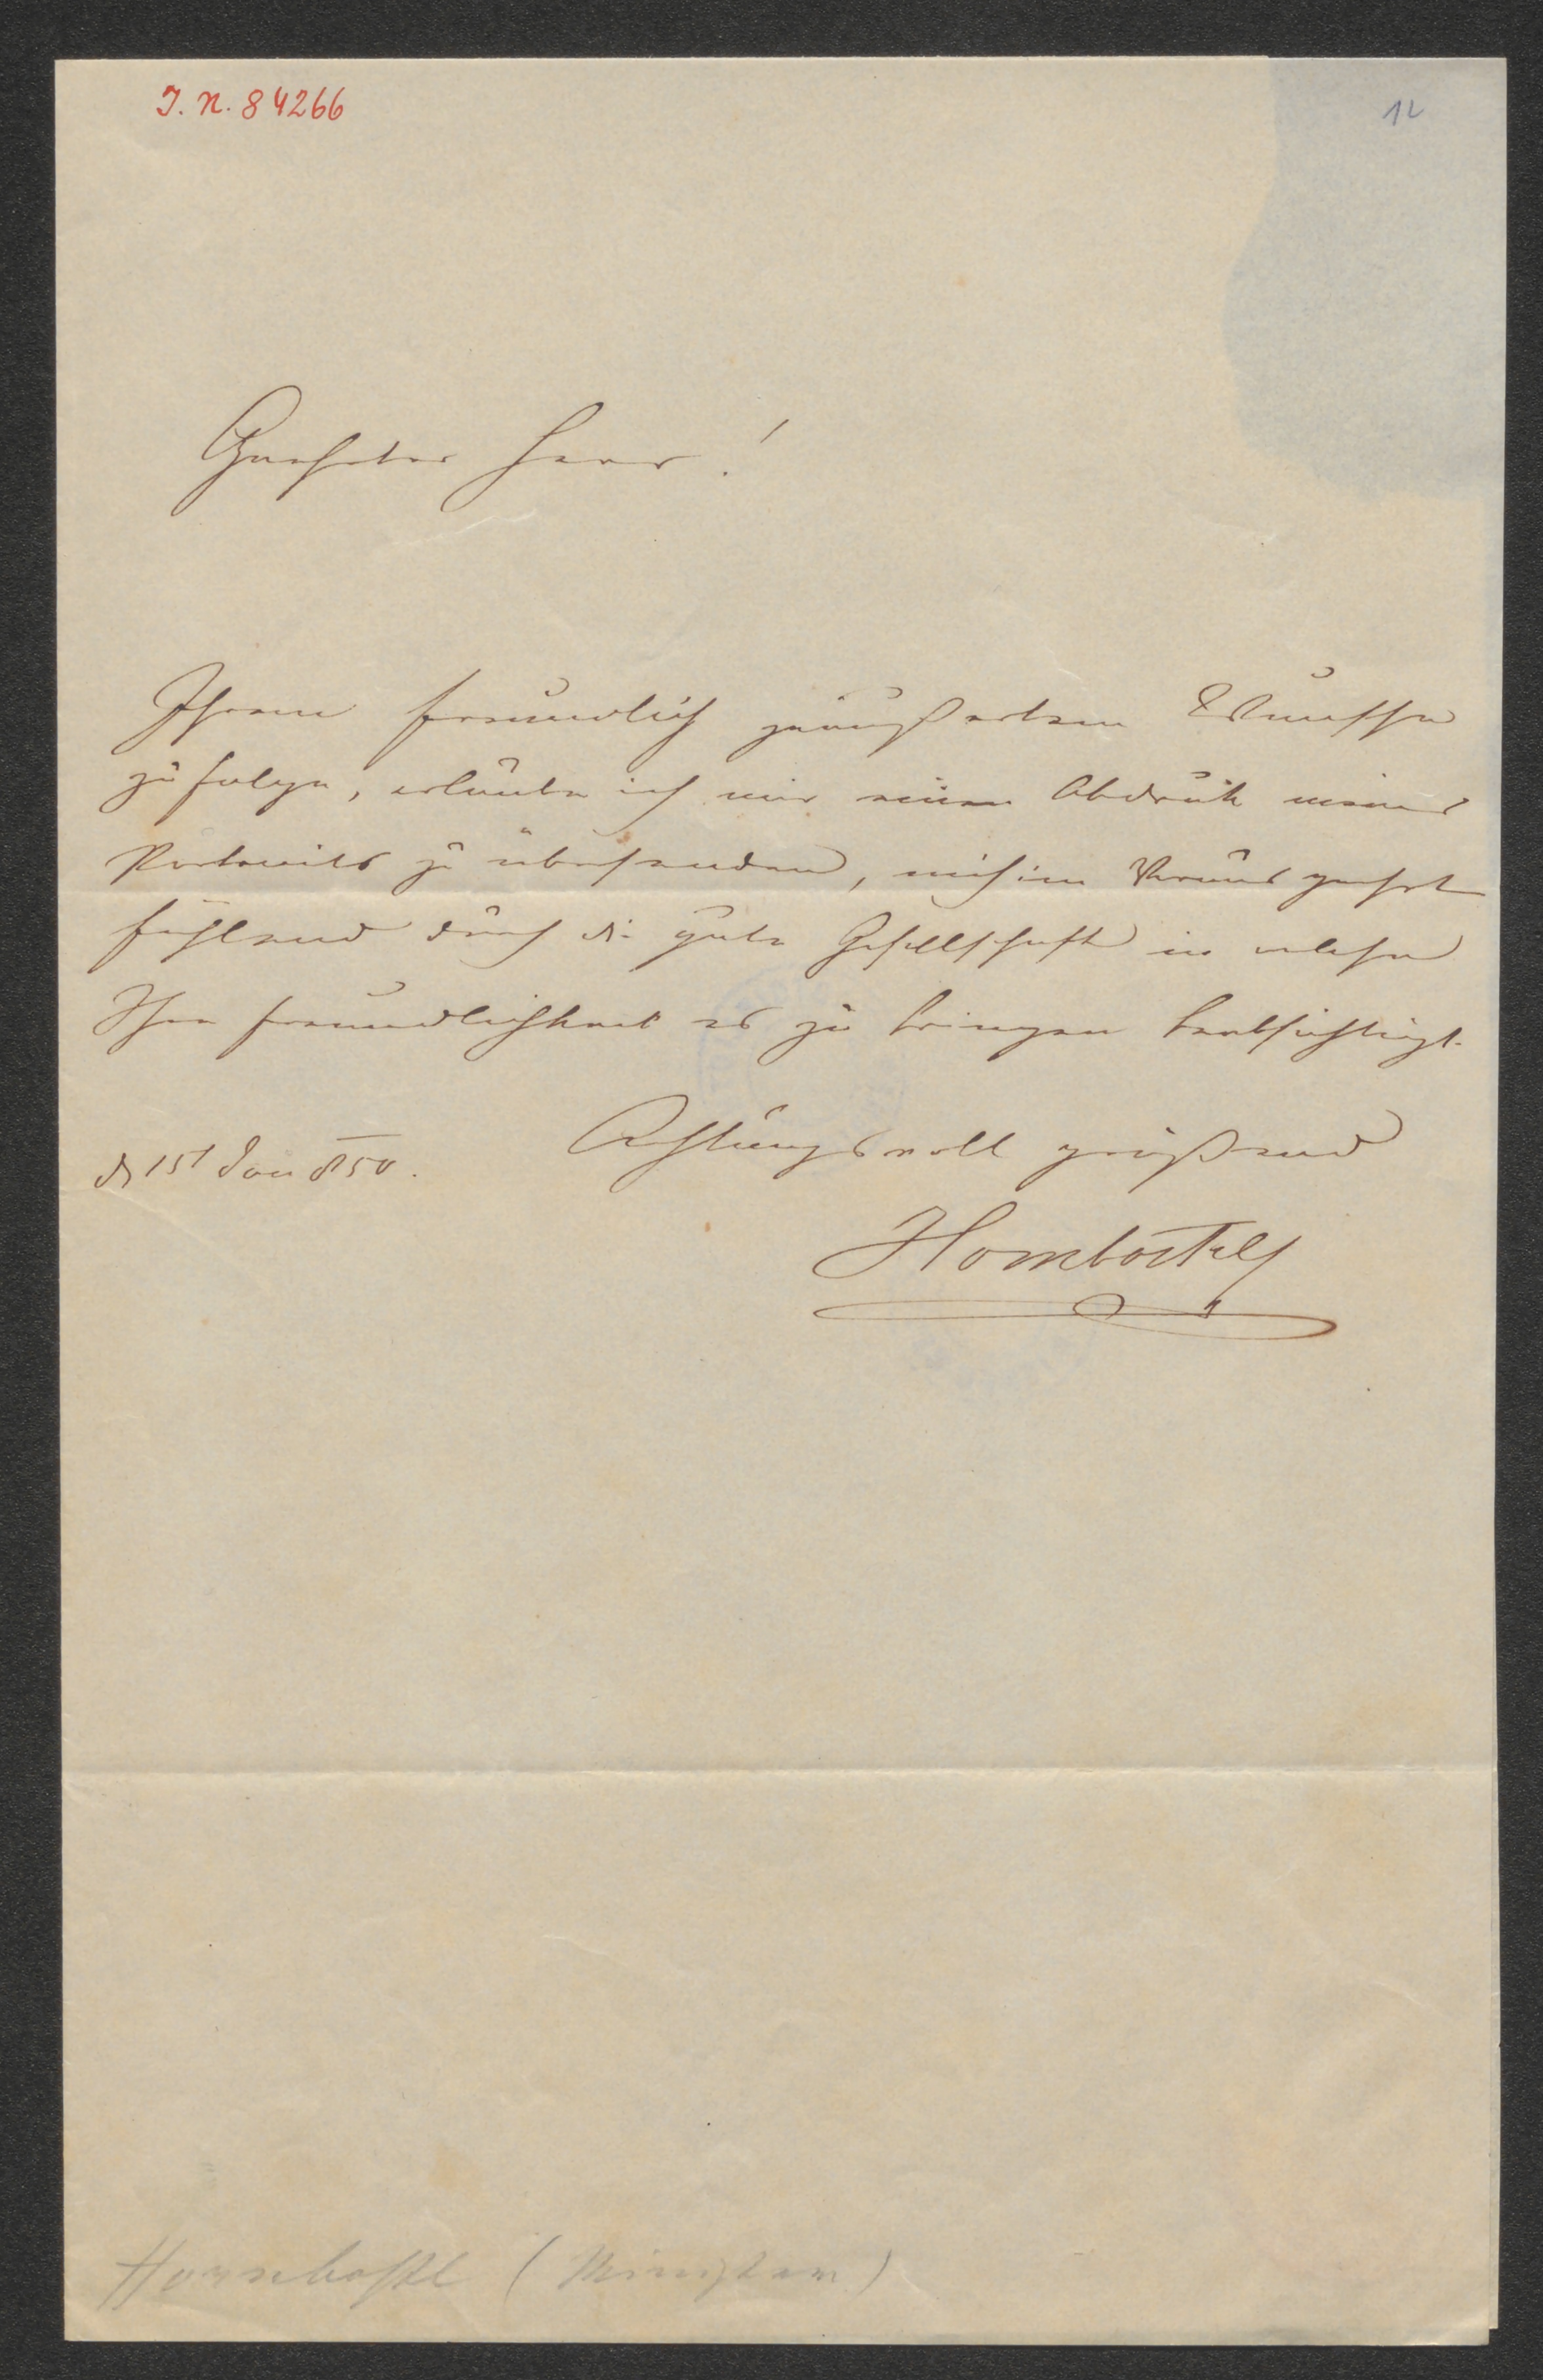 J. N. 84266
12
Geehrter Herr!
Ihrem freundlich geäußerten Wunsche
zu folge, erlaube ich mir einen Abdruk meines
Portraits zu übersenden, mich im Voraus geehrt
fühlend durch die gute Gesellschaft in welche
Ihre Freundlichkeit es zu bringen beabsichtigt.
Achtungsvoll grüßend
d 15t Jan 850.
Hornbostel
Hornbostl (Minister)